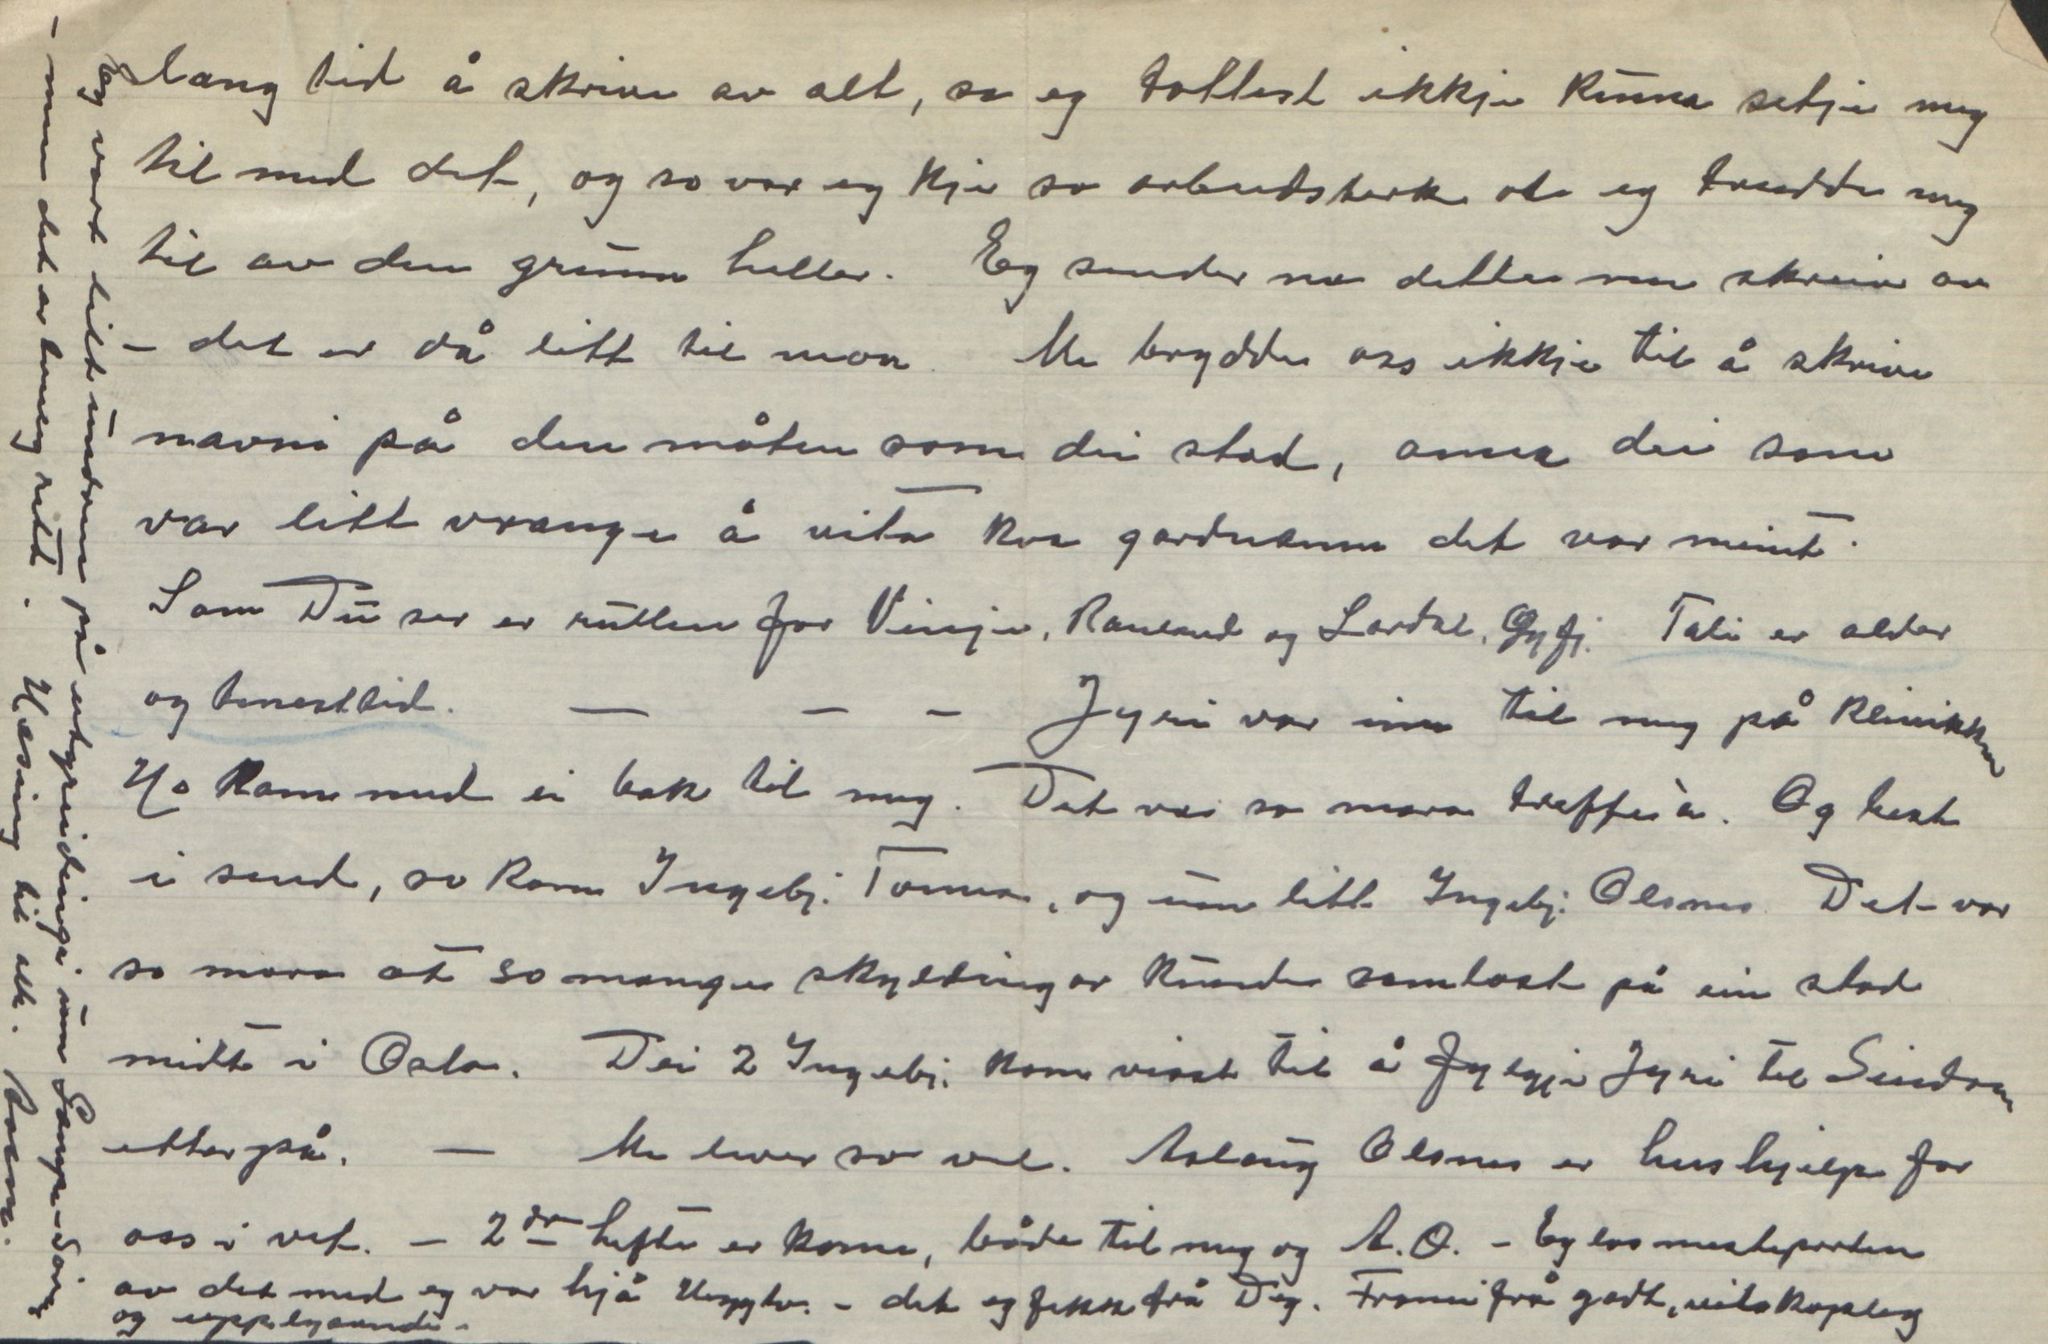 lang tid å skrive av alt, so eg tottest ikkje kunna setje meg
til med det, og so var eg kje so arbeidssterk at eg treudde meg
til av den grunn heller. Eg sender no dette me skreiv av
- det er då litt til mon. Me brydde oss ikkje til å skrive
navni på den måten som dei stod, anna dei som
var litt vrange å vita kva gardnamn det var meint.
Som Du ser er rullen for Vinje, Rauland og Lårdal, Gyfj. Tali er alder
og tenestetid. — - - Jyri var inn til meg på klinikken
Ho kom med ei bok til meg. Det var so mora treffe'a. Og best
i send, so kom Ingebj. Tonna, og um litt Ingebj. Olsnes. Det var
so mora at so mange skyldingar kunde samlast på ein stad
midt i Oslo. Dei 2 Ingebj. kom visst til å fylgje Jyri til Sindra
etterpå. — Me lever so vel. Aslaug Olsnes er hushjelp for
oss i vet. - 2dre hefte er kome, både til meg og A.O. - Eg las mesteparten
av det med eg var hjå Heggtv. - det eg fekk frå Deg. Framifrå godt, vitskapleg
og upplysande.
Eg vart litt undren på utgreidingi um Lange-Søing
- men det er truleg rett. Helsing til alle.